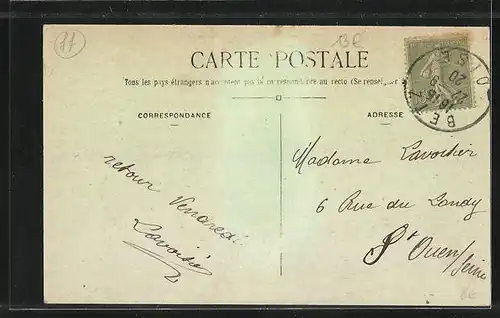 77
BR
CARTE POSTALE
Tous les pays étrangers n'acceptent pas la correspondance au recto (Se renseig
CORRESPONDANCE
ADRESSE
BETZ
OISE
retour Vendredi
Lavoisier
Madame Lavoisier
6 Rue du Landy
St Ouen
Seine